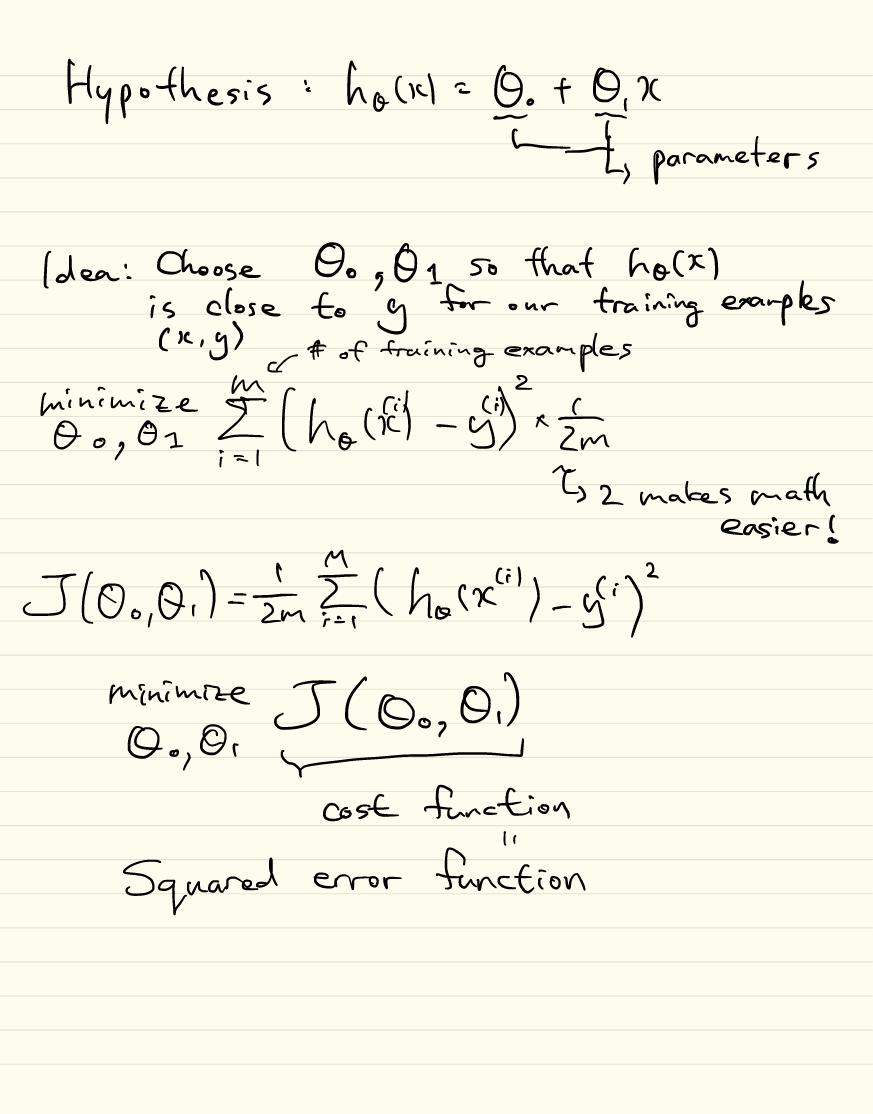 Hypothesis : hθ(x) = θ₀ + θ₁x
↳ parameters
Idea: Choose θ₀, θ1 so that hθ(x)
is close to y for our training examples
(x, y)
# of training examples
minimize θ₀, θ1 m Σ i=1 (hθ(x⁽ⁱ⁾) - y⁽ⁱ⁾)² × 1/2m
↳ 2 makes math
easier!
J(θ₀, θ₁) = 1/2m M Σ i=1 (hθ(x⁽ⁱ⁾) - y⁽ⁱ⁾)²
minimize θ₀, θ₁ J(θ₀, θ₁)
cost function
=
Squared error function